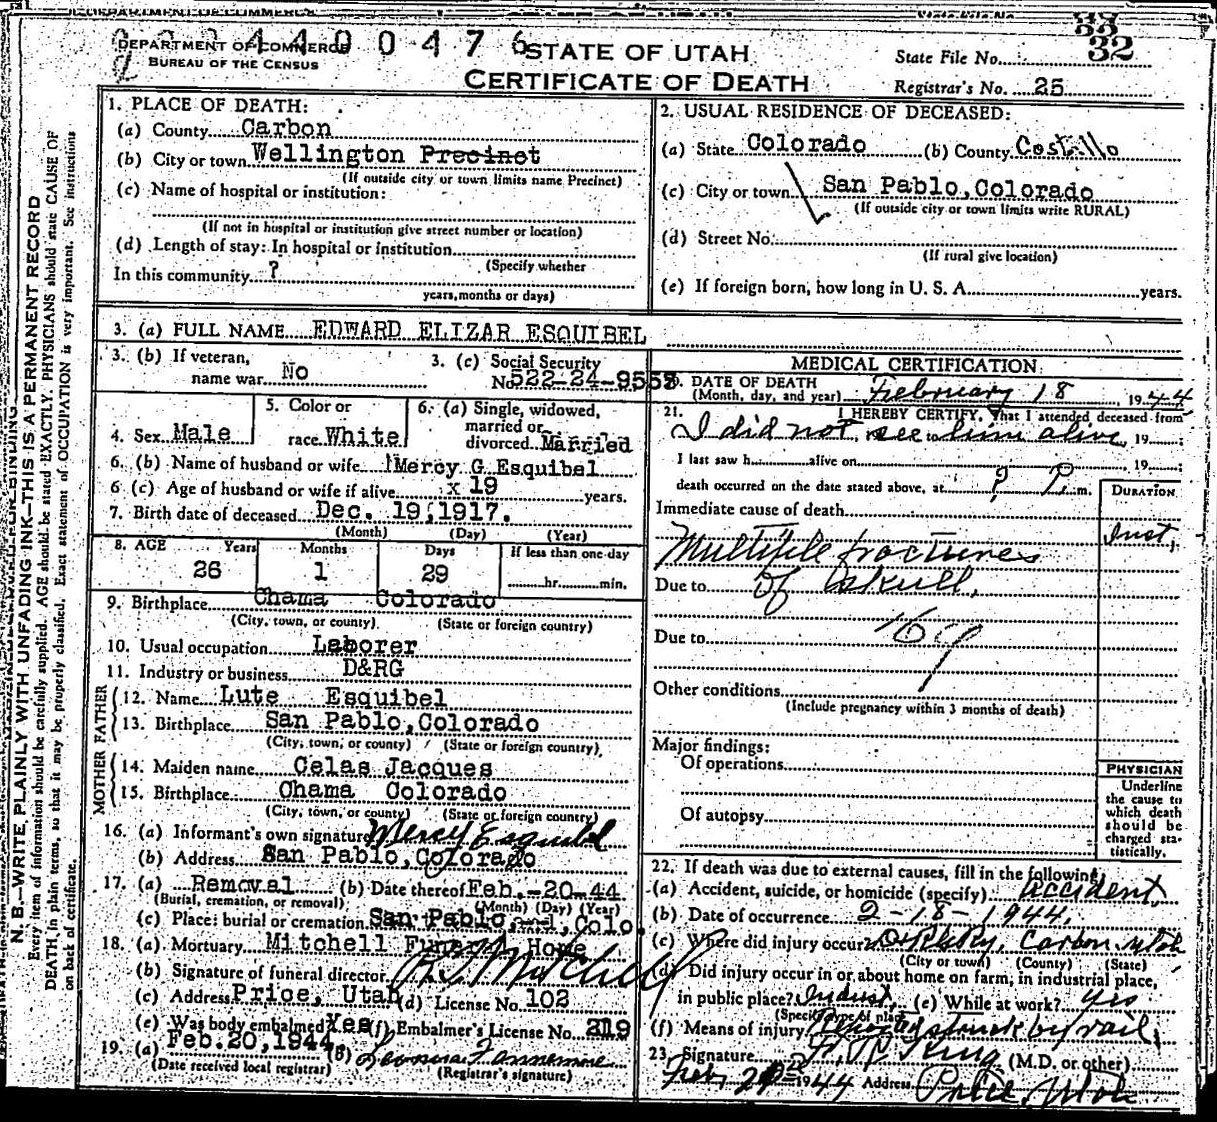 DEPARTMENT OF COMMERCE
BUREAU OF THE CENSUS
STATE OF UTAH
CERTIFICATE OF DEATH
State File No. 32
Registrar's No. 25
1. PLACE OF DEATH:
(a) County Carbon
(b) City or town Wellington Precinct
(If outside city or town limits name Precinct)
(c) Name of hospital or institution:
(If not in hospital or institution give street number or location)
(d) Length of stay: In hospital or institution
(Specify whether
In this community ?
years, months or days)
2. USUAL RESIDENCE OF DECEASED:
(a) State Colorado (b) County Costillo
(c) City or town San Pablo, Colorado
(If outside city or town limits write RURAL)
(d) Street No.
(If rural give location)
(e) If foreign born, how long in U. S. A. years.
3. (a) FULL NAME EDWARD ELIZAR ESQUIBEL
3. (b) If veteran, name war No
3. (c) Social Security No. 522-24-9558
4. Sex Male
5. Color or race White
6. (a) Single, widowed, married or divorced Married
6. (b) Name of husband or wife Mercy G Esquibel
6 (c) Age of husband or wife if alive x 19 years.
7. Birth date of deceased Dec. 19, 1917.
(Month) (Day) (Year)
8. AGE Years Months Days If less than one day
26 1 29 hr. min.
9. Birthplace Chama Colorado
(City, town, or county) (State or foreign country)
10. Usual occupation Laborer
11. Industry or business D&RG
FATHER
12. Name Lute Esquibel
13. Birthplace San Pablo, Colorado
(City, town, or county) (State or foreign country)
MOTHER
14. Maiden name Celas Jacques
15. Birthplace Chama Colorado
(City, town, or county) (State or foreign country)
16. (a) Informant's own signature Mercy Esquibel
(b) Address San Pablo, Colorado
17. (a) Removal (b) Date thereof Feb. -20-44
(Burial, cremation, or removal) (Month) (Day) (Year)
(c) Place: burial or cremation San Pablo, Colo.
18. (a) Mortuary Mitchell Funeral Home
(b) Signature of funeral director Mitchell
(c) Address Price, Utah (d) License No. 102
(e) Was body embalmed Yes (f) Embalmer's License No. 219
19. (a) Feb. 20, 1944. (b)
(Date received local registrar) (Registrar's signature)
MEDICAL CERTIFICATION
20. DATE OF DEATH
(Month, day, and year) February 18, 1944
21. I HEREBY CERTIFY, That I attended deceased from
I did not see him alive, 19 ;
I last saw h alive on 19 ;
death occurred on the date stated above, at ? P. m.
DURATION
Immediate cause of death
Inst.
Multiple fractures
Due to of skull.
Due to 169
Other conditions
(Include pregnancy within 3 months of death)
Major findings:
Of operations
Of autopsy
PHYSICIAN
Underline
the cause to
which death
should be
charged sta-
tistically.
22. If death was due to external causes, fill in the following:
(a) Accident, suicide, or homicide (specify) Accident,
(b) Date of occurrence 2-18-1944.
(c) Where did injury occur? Carbon Utah
(City or town) (County) (State)
(d) Did injury occur in or about home on farm, in industrial place,
in public place? Indust. (e) While at work? yes
(Specify type of place)
(f) Means of injury struck by rail.
23. Signature King (M.D. or other)
Feb 1944 Address Price, Utah
N. B.—WRITE PLAINLY WITH UNFADING INK—THIS IS A PERMANENT RECORD
Every item of information should be carefully supplied. AGE should be stated EXACTLY. PHYSICIANS should state CAUSE OF
DEATH in plain terms, so that it may be properly classified. Exact statement of OCCUPATION is very important. See instructions
on back of certificate.